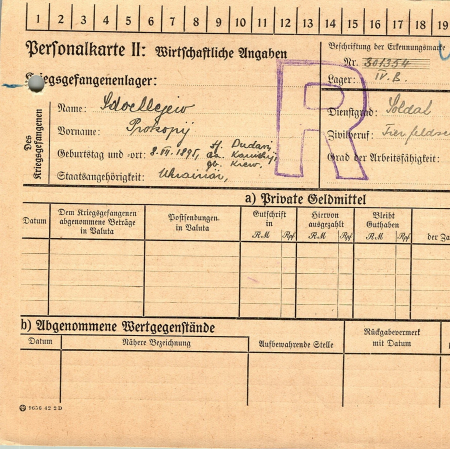 1 2 3 4 5 6 7 8 9 10 11 12 13 14 15 16 17 18 19
Personalkarte II: Wirtschaftliche Angaben
Beschriftung der Erkennungsmarke
Nr. 301354
Kriegsgefangenenlager:
Lager: IV. B.
R
Des Kriegsgefangenen
Name:
Dienstgrad: Soldat
Vorname: Prokopij
Zivilberuf:
Geburtstag und -ort: 8. VII. 1895,
gb. Kiew.
Grad der Arbeitsfähigkeit:
Staatsangehörigkeit: Ukrainiär,
a) Private Geldmittel
Datum
Dem Kriegsgefangenen abgenommene Beträge in Valuta
Postsendungen in Valuta
Gutschrift in
RM Rpf
Hiervon ausgezahlt
RM Rpf
Bleibt Guthaben
RM Rpf
der Za
b) Abgenommene Wertgegenstände
Datum
Nähere Bezeichnung
Aufbewahrende Stelle
Rückgabevermerk mit Datum
9656 42 2 D